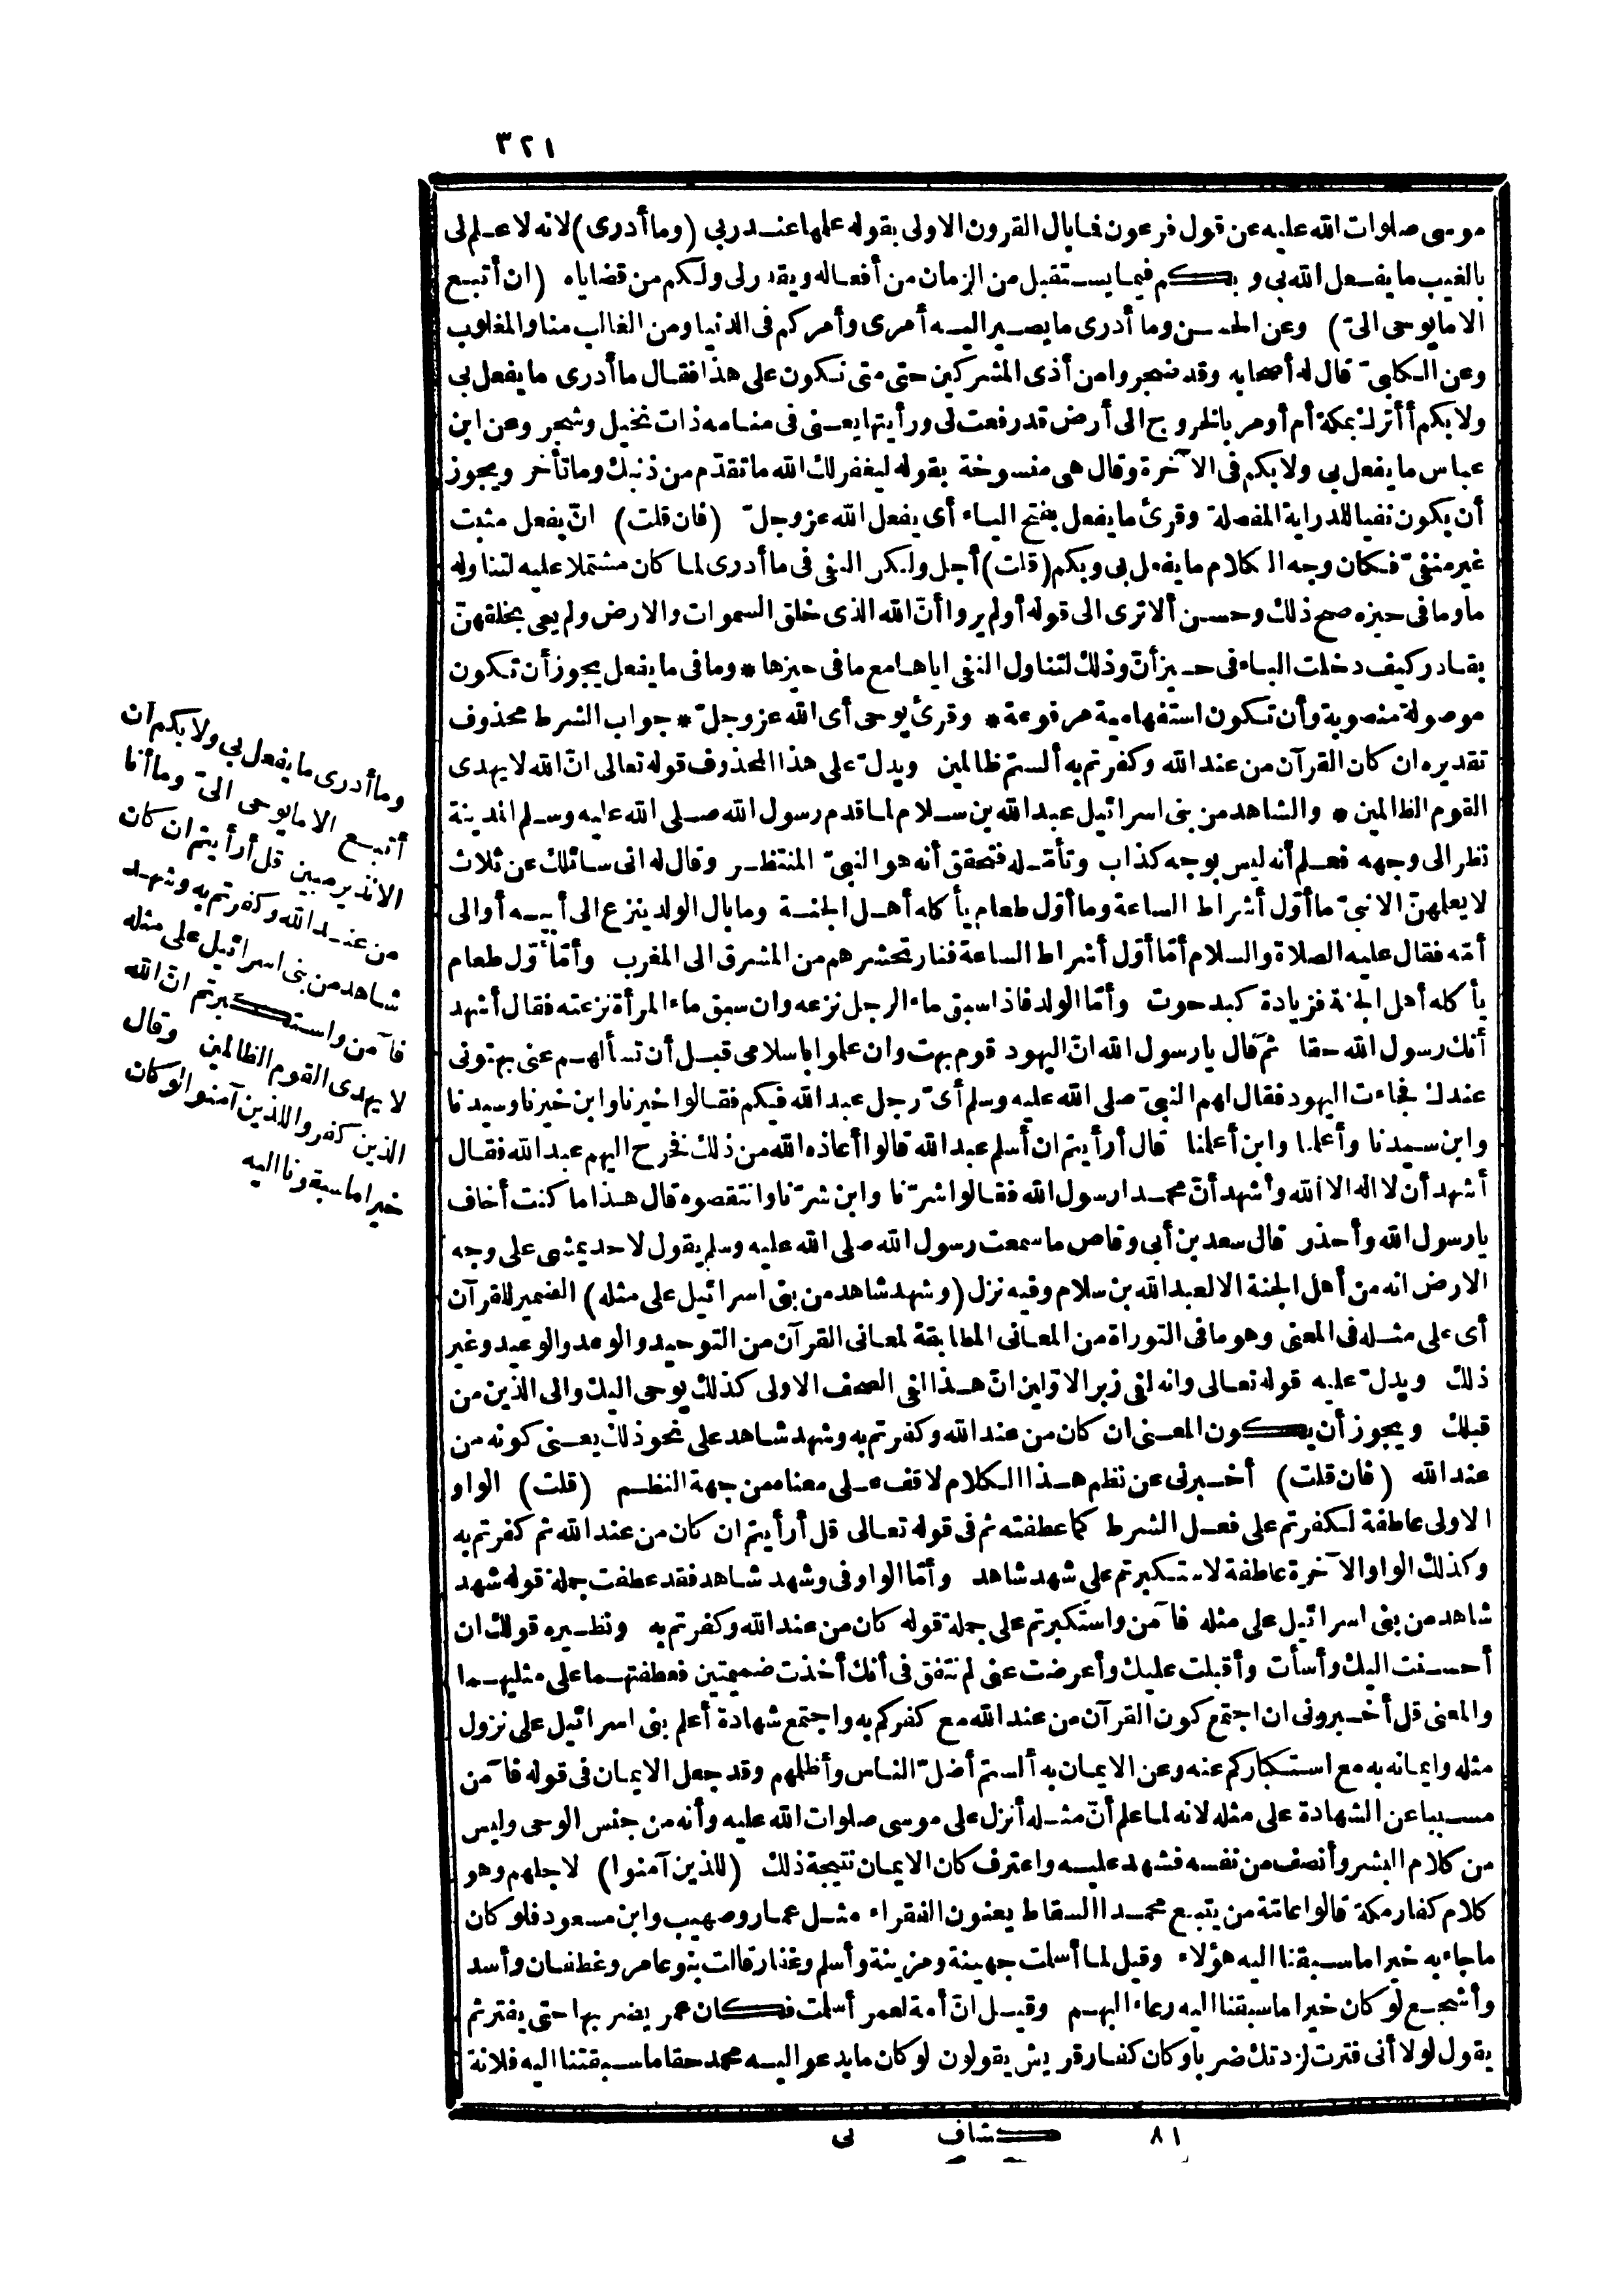 ٣٢١
موسى صلوات الله عليه عن قول فرعون فما بال القرون الاولى بقوله علمها عند ربى (وما أدرى) لانه لا علم لى
بالغيب ما يفعل الله بى وبكم فيما يستقبل من الزمان من أفعاله ويقدر لى ولكم من قضاياه (ان أتبع
الا ما يوحى الىّ) وعن الحسن وما أدرى ما يصير اليه أمرى وأمركم فى الدنيا ومن الغالب منا والمغلوب
وعن الكلبىّ قال له أصحابه وقد ضجروا من أذى المشركين حتى متى نكون على هذا فقال ما أدرى ما يفعل بى
ولا بكم أأترك بمكة أم أومر بالخروج الى أرض قد رفعت لى ورأيتها يعنى فى منامه ذات نخيل وشجر وعن ابن
عباس ما يفعل بى ولا بكم فى الآخرة وقال هى منسوخة بقوله ليغفر لك الله ما تقدّم من ذنبك وما تأخر ويجوز
أن يكون نفيا للدراية المفصلة وقرئ ما يفعل بفتح الياء أى يفعل الله عز وجلّ (فان قلت) انّ يفعل مثبت
غير منفىّ فكان وجه الكلام ما يفعل بى وبكم (قلت) أجل ولكن النفى فى ما أدرى لما كان مشتملا عليه لتناوله
ما وما فى حيزه صح ذلك وحسن ألا ترى الى قوله أولم يروا أنّ الله الذى خلق السموات والارض ولم يعى بخلقهنّ
بقادر كيف دخلت الباء فى حيز أنّ وذلك لتناول النفى اياها مع ما فى حيزها * وما فى ما يفعل يجوز أن تكون
موصولة منصوبة وأن تكون استفهامية مرفوعة * وقرئ يوحى أى الله عز وجلّ * جواب الشرط محذوف
تقديره ان كان القرآن من عند الله وكفرتم به ألستم ظالمين ويدلّ على هذا المحذوف قوله تعالى انّ الله لا يهدى
القوم الظالمين * والشاهد من بنى اسرائيل عبد الله بن سلام لما قدم رسول الله صلى الله عليه وسلم المدينة
نظر الى وجهه فعلم أنه ليس بوجه كذاب وتأمّله فتحقق أنه هو النبىّ المنتظر وقال له انى سائلك عن ثلاث
لا يعلمهنّ الا نبىّ ما أوّل أشراط الساعة وما أوّل طعام يأكله أهل الجنة وما بال الولد ينزع الى أبيه أو الى
أمّه فقال عليه الصلاة والسلام أمّا أوّل أشراط الساعة فنار تحشرهم من المشرق الى المغرب وأمّا أوّل طعام
يأكله أهل الجنة فزيادة كبد حوت وأمّا الولد فاذا سبق ماء الرجل نزعه وان سبق ماء المرأة نزعته فقال أشهد
أنك رسول الله حقا ثم قال يا رسول الله انّ اليهود قوم بهت وان علموا باسلامى قبل أن تسألهم عنى بهتونى
عندك فجاءت اليهود فقال لهم النبىّ صلى الله عليه وسلم أىّ رجل عبد الله فيكم فقالوا خيرنا وابن خيرنا وسيدنا
وابن سيدنا وأعلمنا وابن أعلمنا قال أرأيتم ان أسلم عبد الله قالوا أعاذه الله من ذلك فخرج اليهم عبد الله فقال
أشهد أن لا اله الا الله وأشهد أنّ محمدا رسول الله فقالوا شرّنا وابن شرّنا وانتقصوه قال هذا ما كنت أخاف
يا رسول الله وأحذر قال سعد بن أبى وقاص ما سمعت رسول الله صلى الله عليه وسلم يقول لاحد يمشى على وجه
الارض انه من أهل الجنة الا لعبد الله بن سلام وفيه نزل (وشهد شاهد من بنى اسرائيل على مثله) الضمير للقرآن
أى على مثله فى المعنى وهو ما فى التوراة من المعانى المطابقة لمعانى القرآن من التوحيد والوعد والوعيد وغير
ذلك ويدلّ عليه قوله تعالى وانه لفى زبر الاوّلين انّ هذا لفى الصحف الاولى كذلك يوحى اليك والى الذين من
قبلك ويجوز أن يكون المعنى ان كان من عند الله وكفرتم به وشهد شاهد على نحو ذلك يعنى كونه من
عند الله (فان قلت) أخبرنى عن نظم هذا الكلام لاقف على معناه من جهة النظم (قلت) الواو
الاولى عاطفة لكفرتم على فعل الشرط كما عطفته ثم فى قوله تعالى قل أرأيتم ان كان من عند الله ثم كفرتم به
وكذلك الواو الآخرة عاطفة لاستكبرتم على شهد شاهد وأمّا الواو فى وشهد شاهد فقد عطفت جملة قوله شهد
شاهد من بنى اسرائيل على مثله فآمن واستكبرتم على جملة قوله كان من عند الله وكفرتم به ونظيره قولك ان
أحسنت اليك وأسأت وأقبلت عليك وأعرضت عنى لم نتفق فى أنك أخذت ضميمتين فعطفتهما على مثليهما
والمعنى قل أخبرونى ان اجتمع كون القرآن من عند الله مع كفركم به واجتمع شهادة أعلم بنى اسرائيل على نزول
مثله وايمانه به مع استكباركم عنه وعن الايمان به ألستم أضلّ الناس وأظلمهم وقد جعل الايمان فى قوله فآمن
مسببا عن الشهادة على مثله لانه لما علم أنّ مثله أنزل على موسى صلوات الله عليه وأنه من جنس الوحى وليس
من كلام البشر وأنصف من نفسه فشهد عليه واعترف كان الايمان نتيجة ذلك (للذين آمنوا) لاجلهم وهو
كلام كفار مكة قالوا عامّة من يتبع محمدا السقاط يعنون الفقراء مثل عمار وصهيب وابن مسعود فلو كان
ما جاء به خيرا ما سبقنا اليه هؤلاء وقيل لما أسلمت جهينة ومزينة وأسلم وغفار قالت بنو عامر وغطفان وأسد
وأشجع لو كان خيرا ما سبقنا اليه رعاء البهم وقيل انّ أمة لعمر أسلمت فكان عمر يضربها حتى يفتر ثم
يقول لولا أنى فترت لزدتك ضربا وكان كفار قريش يقولون لو كان ما يدعو اليه محمد حقا ما سبقتنا اليه فلانة
وما أدرى ما يفعل بى ولا بكم ان
أتبع الا ما يوحى الىّ وما أنا
الا نذير مبين قل أرأيتم ان كان
من عند الله وكفرتم به وشهد
شاهد من بنى اسرائيل على مثله
فآمن واستكبرتم انّ الله
لا يهدى القوم الظالمين وقال
الذين كفروا للذين آمنوا لو كان
خيرا ما سبقونا اليه
٨١ كشاف نى